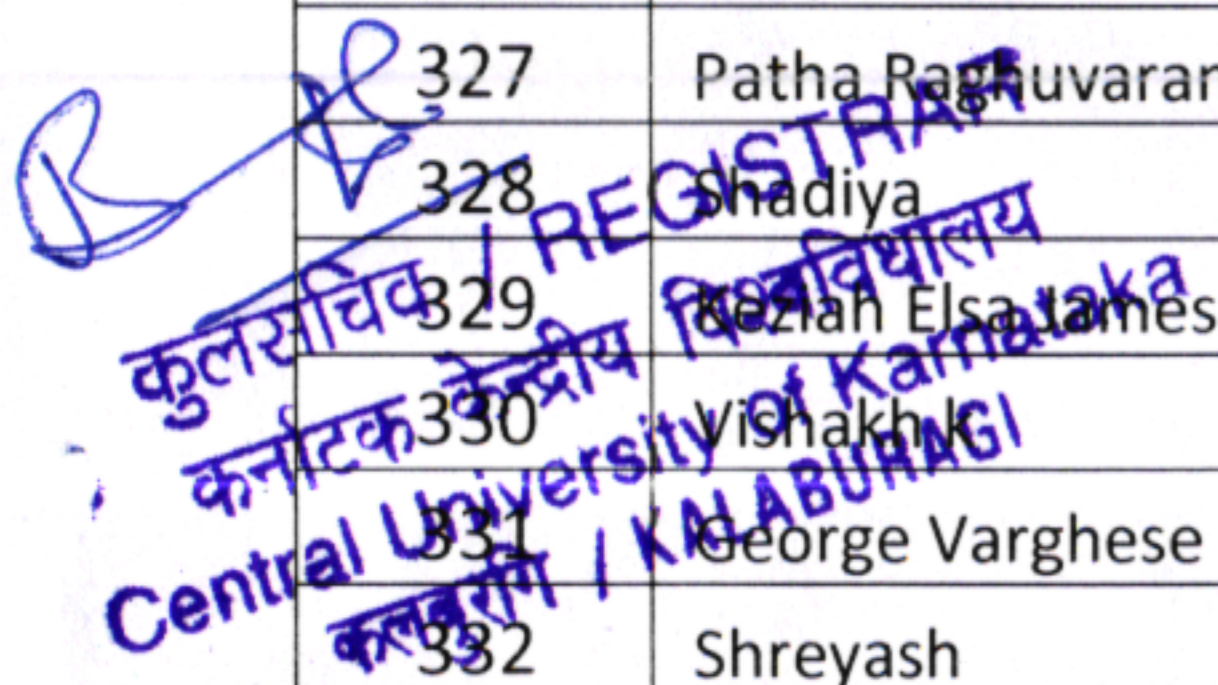 327 Patha Raghuvaran
328 Shadiya
329 Keziah Elsa James
330 Vishakh k
331 George Varghese
332 Shreyash
कुलसचिव / REGISTRAR
कर्नाटक केन्द्रीय विश्वविद्यालय
Central University of Karnataka
कलबुरगि / KALABURAGI